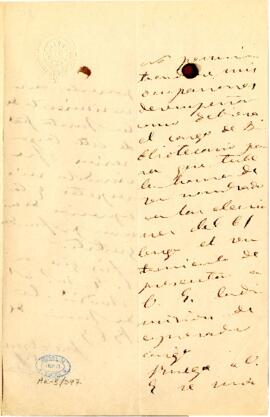 No permi-
tiendome mis
ocupaciones
desempeñar
como debiera
el cargo de Bi-
bliotecario pa-
ra que tube
la honra de
ser nombrado
en las eleccio-
nes del 61
tengo el sen-
timiento de
presentar a
V. S. la di-
misión de
espresado
cargo
Ruego a V.
S. se sirva
AK-5/397